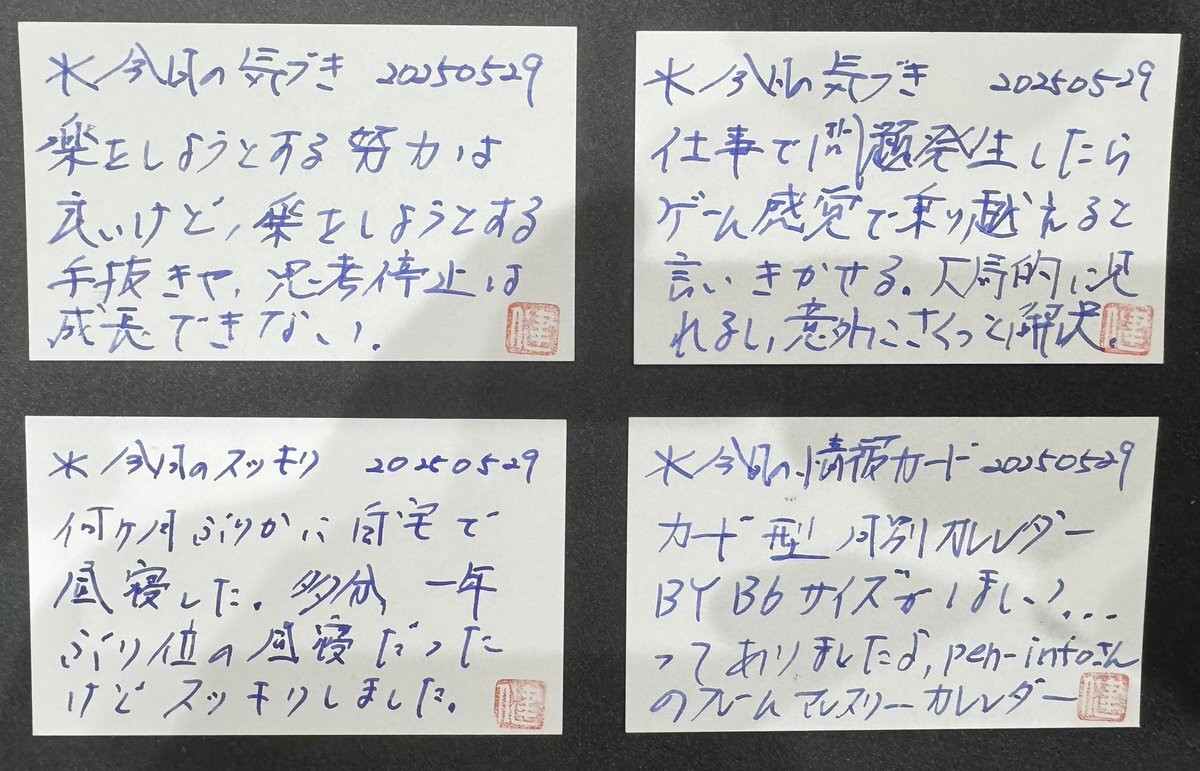 ※今日の気づき 20250529
楽をしようとする努力は
良いけど、楽をしようとする
手抜きや、思考停止は
成長できない。
健
※今日の気づき 20250529
仕事で問題発生したら
ゲーム感覚で乗り越えると
言いきかせる。大局的に見
れるし、意外にさくっと解決。
健
※今日のスッキリ 20250529
何ヶ月ぶりかに自宅で
昼寝した。多分、一年
ぶり位の昼寝だった
けどスッキリしました。
健
※今日の情報カード 20250529
カード型月別カレンダー
BY B6サイズがほしい...
ってありましたよ、pen-infoさん
のフレームマンスリーカレンダー
健